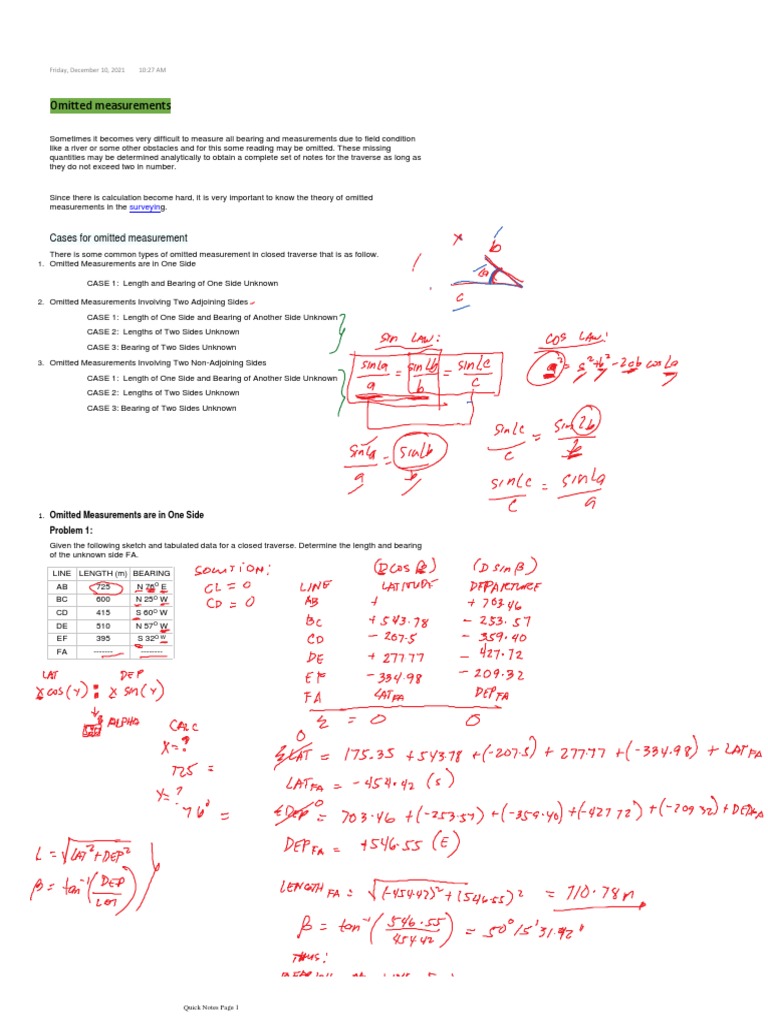 Friday, December 10, 2021 10:27 AM
Omitted measurements
Sometimes it becomes very difficult to measure all bearing and measurements due to field condition
like a river or some other obstacles and for this some reading may be omitted. These missing
quantities may be determined analytically to obtain a complete set of notes for the traverse as long as
they do not exceed two in number.
Since there is calculation become hard, it is very important to know the theory of omitted
measurements in the surveying.
Cases for omitted measurement
There is some common types of omitted measurement in closed traverse that is as follow.
1. Omitted Measurements are in One Side
CASE 1: Length and Bearing of One Side Unknown
2. Omitted Measurements Involving Two Adjoining Sides
CASE 1: Length of One Side and Bearing of Another Side Unknown
CASE 2: Lengths of Two Sides Unknown
CASE 3: Bearing of Two Sides Unknown
3. Omitted Measurements Involving Two Non-Adjoining Sides
CASE 1: Length of One Side and Bearing of Another Side Unknown
CASE 2: Lengths of Two Sides Unknown
CASE 3: Bearing of Two Sides Unknown
x b
c
sin law: cos law:
sin∠a/a = sin∠b/b = sin∠c/c
a² = c²+b²-2cb cos∠a
sin∠a/a = sin∠b/b
sin∠c/c = sin∠b/b
sin∠c/c = sin∠a/a
1. Omitted Measurements are in One Side
Problem 1:
Given the following sketch and tabulated data for a closed traverse. Determine the length and bearing
of the unknown side FA.
LINE LENGTH (m) BEARING
AB 725 N 76° E
BC 600 N 25° W
CD 415 S 60° W
DE 510 N 57° W
EF 395 S 32° W
FA ------- --------
SOLUTION:
CL = 0
CD = 0
(D cos β) (D sin β)
LINE LATITUDE DEPARTURE
AB + + 703.46
BC + 543.78 - 253.57
CD - 207.5 - 359.40
DE + 277.77 - 427.72
EF - 334.98 - 209.32
FA LAT FA DEP FA
Σ = 0 0
LAT DEP
x cos(y) : x sin(y)
ALPHA
CALC
X = ?
725 =
Y = ?
76° =
0
ΣLAT = 175.35 + 543.78 + (-207.5) + 277.77 + (-334.98) + LAT FA
LAT FA = -454.42 (S)
0
ΣDEP = 703.46 + (-253.57) + (-359.40) + (-427.72) + (-209.32) + DEP FA
DEP FA = +546.55 (E)
L = √LAT² + DEP²
β = tan⁻¹(DEP/LAT)
LENGTH FA = √(-454.42)² + (546.55)² = 710.78m
β = tan⁻¹(546.55/454.42) = 50°15'31.92"
THUS:
Quick Notes Page 1